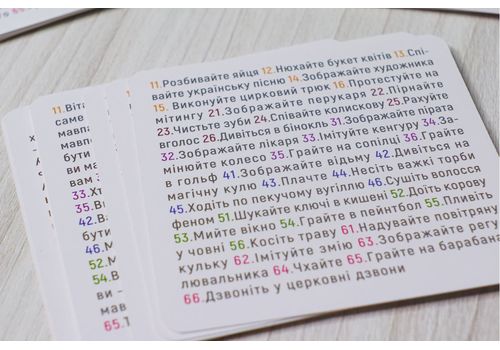 11.Розбивайте яйця 12.Нюхайте букет квітів 13.Спі-
вайте українську пісню 14.Зображайте художника
15. Виконуйте цирковий трюк 16.Протестуйте на
мітингу 21.Зображайте перукаря 22.Пірнайте
23.Чистьте зуби 24.Співайте колискову 25.Рахуйте
вголос 26.Дивіться в бінокль 31.Зображайте пірата
32.Зображайте лікаря 33.Імітуйте кенгуру 34.За-
мінюйте колесо 35.Грайте на сопілці 36.Грайте
в гольф 41.Зображайте відьму 42.Дивіться на
магічну кулю 43.Плачте 44.Несіть важкі торби
45.Ходіть по пекучому вугіллю 46.Сушіть волосся
феном 51.Шукайте ключі в кишені 52.Доїть корову
53.Мийте вікно 54.Грайте в пейнтбол 55.Пливіть
у човні 56.Косіть траву 61.Надувайте повітряну
кульку 62.Імітуйте змію 63.Зображайте регу
лювальника 64.Чхайте 65.Грайте на барабана
66.Дзвоніть у церковні дзвони
11.Віта
саме
мавпа
бути
ви ма
вам
33.Хт
35.Ві
42.В
бути
46.М
52.М
54.В
ви -
мав
65.Т